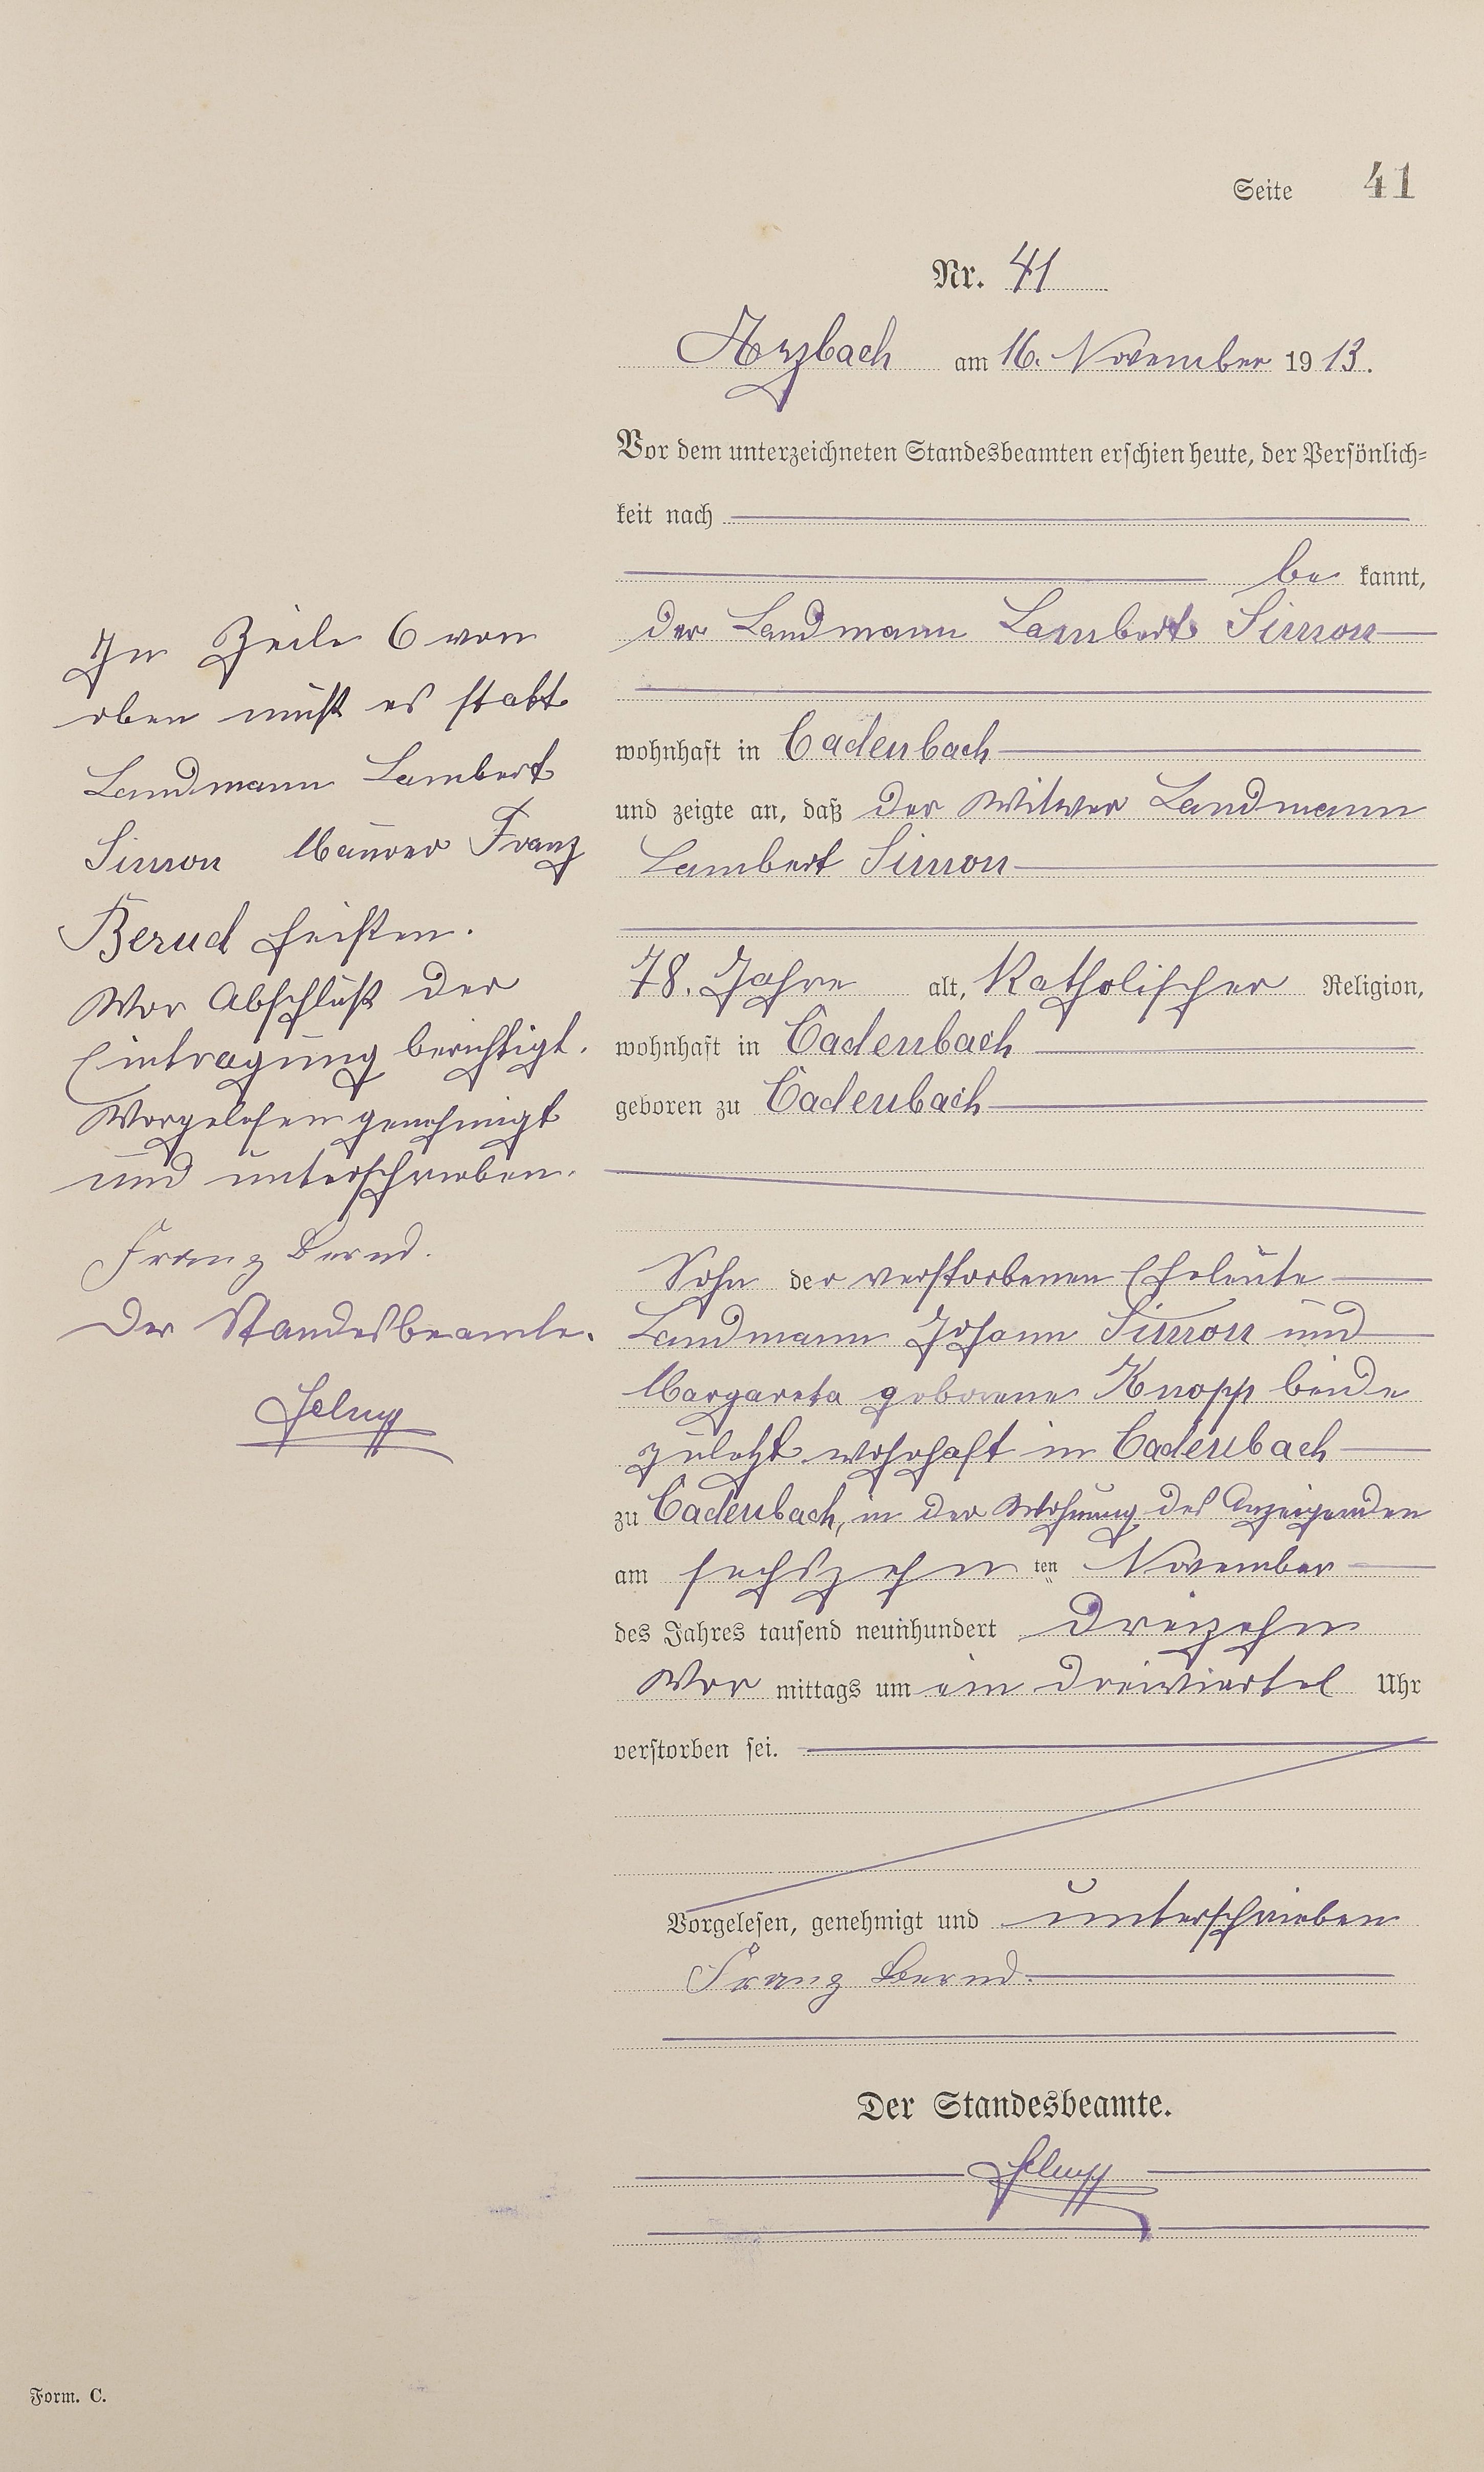 Seite 41
Nr. 41
Arzbach am 16. November 1913.
Vor dem unterzeichneten Standesbeamten erschien heute, der Persönlich-
keit nach
be kannt,
der Landmann Lambert Simon
wohnhaft in Cadenbach
und zeigte an, daß der Witwer Landmann
Lambert Simon
78. Jahre alt, Katholischer Religion,
wohnhaft in Cadenbach
geboren zu Cadenbach
Sohn der verstorbenen Eheleute
Landmann Johann Simon und
Margareta geborene Knopp beide
zuletzt wohnhaft in Cadenbach
zu Cadenbach, in der Wohnung des Anzeigenden
am sechszehn ten November
des Jahres tausend neunhundert dreizehn
Vor mittags um ein dreiviertel Uhr
verstorben sei.
Vorgelesen, genehmigt und unterschrieben
Franz Bernd.
Der Standesbeamte.
In Zeile 6 von
oben muß es statt
Landmann Lambert
Simon Maurer Franz
Bernd heißen.
Vor Abschluß der
Eintragung berichtigt.
Vorgelesen genehmigt
und unterschrieben.
Franz Bernd.
Der Standesbeamte.
Form. C.